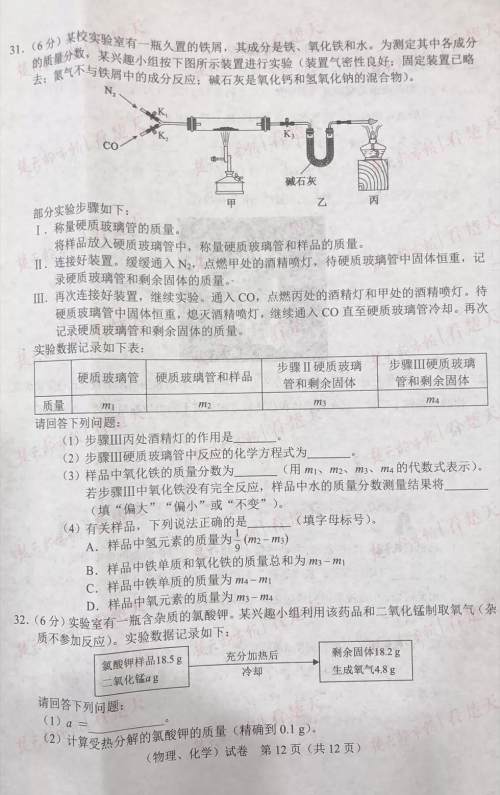 31.（6分）某校实验室有一瓶久置的铁屑，其成分是铁、氧化铁和水。为测定其中各成分
的质量分数，某兴趣小组按下图所示装置进行实验（装置气密性良好；固定装置已略
去；氮气不与铁屑中的成分反应；碱石灰是氧化钙和氢氧化钠的混合物）。
N₂
K₁
K₂
CO
K₃
碱石灰
甲 乙 丙
部分实验步骤如下：
Ⅰ. 称量硬质玻璃管的质量。
将样品放入硬质玻璃管中，称量硬质玻璃管和样品的质量。
Ⅱ. 连接好装置。缓缓通入 N₂，点燃甲处的酒精喷灯，待硬质玻璃管中固体恒重，记
录硬质玻璃管和剩余固体的质量。
Ⅲ. 再次连接好装置，继续实验。通入 CO，点燃丙处的酒精灯和甲处的酒精喷灯。待
硬质玻璃管中固体恒重，熄灭酒精喷灯，继续通入 CO 直至硬质玻璃管冷却。再次
记录硬质玻璃管和剩余固体的质量。
实验数据记录如下表：
硬质玻璃管 硬质玻璃管和样品 步骤Ⅱ硬质玻璃管和剩余固体 步骤Ⅲ硬质玻璃管和剩余固体
质量 m₁ m₂ m₃ m₄
请回答下列问题：
（1）步骤Ⅲ丙处酒精灯的作用是______。
（2）步骤Ⅲ硬质玻璃管中反应的化学方程式为______。
（3）样品中氧化铁的质量分数为______（用 m₁、m₂、m₃、m₄ 的代数式表示）。
若步骤Ⅲ中氧化铁没有完全反应，样品中水的质量分数测量结果将______
（填“偏大”“偏小”或“不变”）。
（4）有关样品，下列说法正确的是______（填字母标号）。
A．样品中氢元素的质量为 1/9 (m₂－m₃)
B．样品中铁单质和氧化铁的质量总和为 m₃－m₁
C．样品中铁单质的质量为 m₄－m₁
D．样品中氧元素的质量为 m₃－m₄
32.（6分）实验室有一瓶含杂质的氯酸钾。某兴趣小组利用该药品和二氧化锰制取氧气（杂
质不参加反应）。实验数据记录如下：
氯酸钾样品18.5 g
二氧化锰a g
充分加热后
冷却
剩余固体18.2 g
生成氧气4.8 g
请回答下列问题：
（1）a = ______。
（2）计算受热分解的氯酸钾的质量（精确到 0.1 g）。
（物理、化学）试卷 第 12 页（共 12 页）